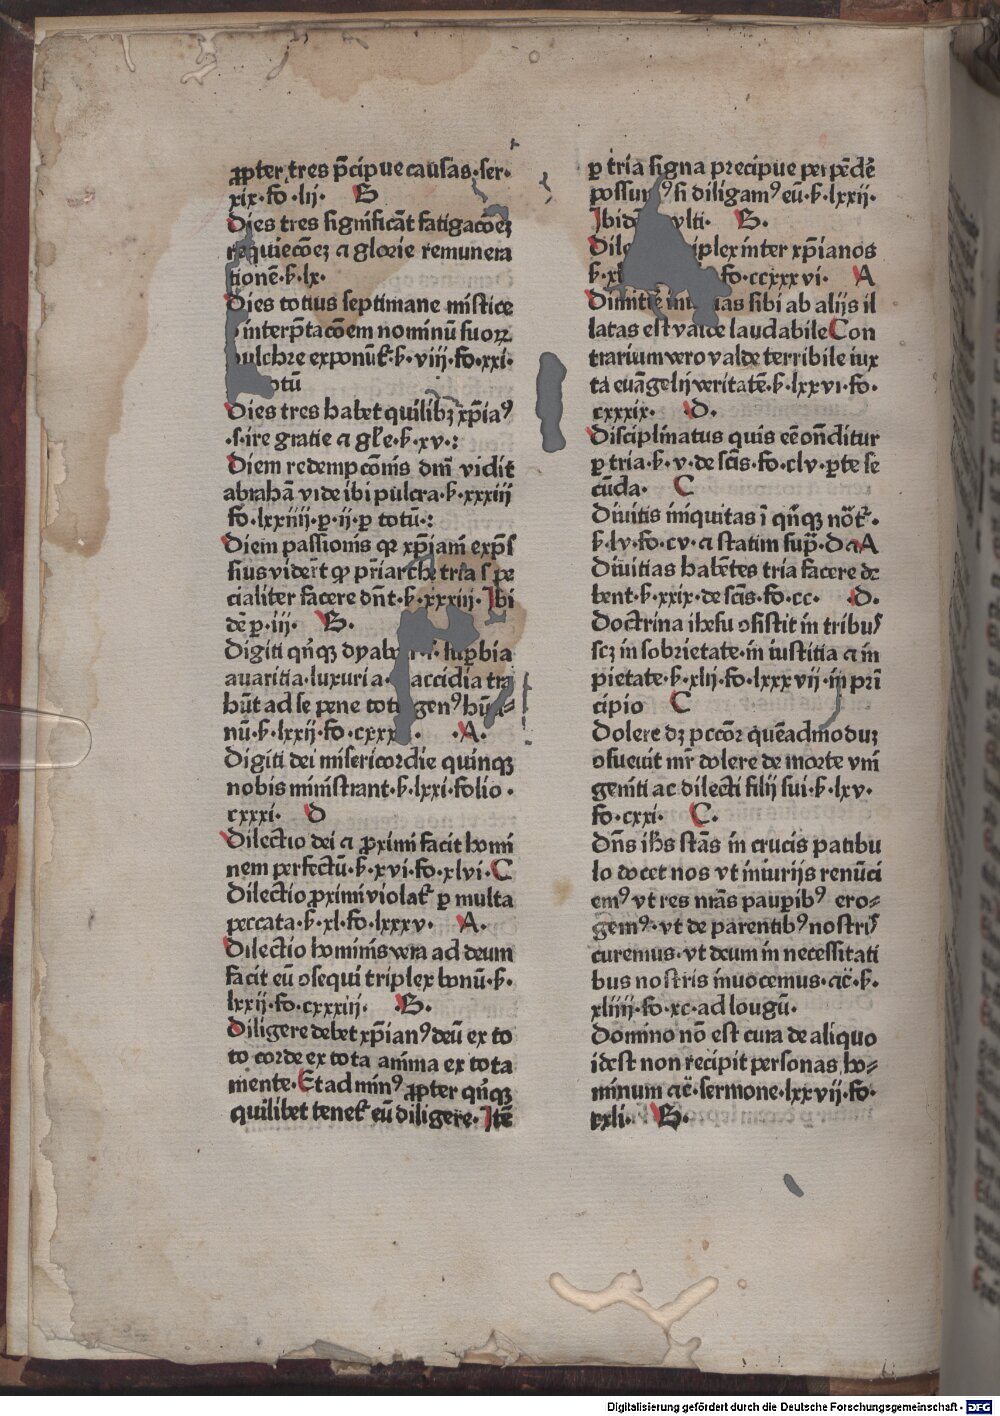 ꝓpter tres p̄cipue causas·ser·
xix·fo·lij· B
Dies tres significāt fatigacōeꝫ
requiecōeꝫ ⁊ glorie remunera
tionē·ẜ·lx·
Dies totius septimane mistice
interp̄tacōem nominū suoꝝ
pulchre exponūt᷑·ẜ·viij·fo·xxi·
totū
Dies tres habet quilibꝫ xp̄iaꝰ
·s·ire gratie ⁊ gl̄e·ẜ·xv·:
Diem redempcōnis dn̄i vidit
abrahā vide ibi pulcra·ẜ·xxxiij
fo·lxxiiij·ꝑ·ij·ꝑ totū·:
Diem passionis qꝛ xp̄iani exp̄s
sius vider̄t ꝙ pr̄iarche tria s pe
cialiter facere dn̄t·ẜ·xxxiij·Ibi
dē ꝑ·iij· B·
Digiti qn̄qꝫ dyab suꝑbia
auaritia·luxuria· accidia tra
hūt ad se pene totū genꝰ hūa⸗
nū·ẜ·lxxij·fo·cxxx ·A·
Digiti dei misericordie quinqꝫ
nobis ministrant·ẜ·lxxi·folio·
cxxxi· D
Dilectio dei ⁊ ꝓximi facit homi
nem perfectū·ẜ·xvi·fo·xlvi·C
Dilectio ꝓximi violat᷑ ꝑ multa
peccata·ẜ·xl·fo·lxxxv· A·
Dilectio hominis vera ad deum
facit eū ꝯsequi triplex bonū·ẜ·
lxxij·fo·cxxxiij· ·B·
Diligere debet xp̄ianꝰ deū ex to
to corde ex tota anima ex tota
mente·Et ad minꝰ ꝓpter qn̄qꝫ
quilibet tenet᷑ eū diligere·Itē
ꝑ tria signa precipue perpēdē
possumꝰ si diligamꝰ eū·ẜ·lxxij·
Ibidē vlti· B·
Dile iplex inter xp̄ianos
ẜ·xl fo·ccxxxvi· A
Dimittē inı ias sibi ab alijs il
latas est valde laudabile Con
trarium vero valde terribile iux
ta euāgelij veritatē·ẜ·lxxvi·fo·
cxxxix· ·D·
Disciplinatus quis eē on̄ditur
ꝑ tria·ẜ·v·de scīs·fo·clv·ꝑte se
cūda· C
Diuitis iniquitas ī qn̄qꝫ nōt᷑·
ẜ·lv·fo·cv·⁊ statim sup̄·D ⁊ A
Diuitias habētes tria facere de
bent·ẜ·xxix·de scīs·fo·cc· ·D·
Doctrina ihesu ꝯsistit in tribuſ
scꝫ in sobrietate·in iustitia ⁊ in
pietate·ẜ·xlij·fo·lxxxvij·in pri
cipio C
Dolere dꝫ pccōr quēadmoduꝫ
ꝯsueuit mr̄ dolere de morte vni
geniti ac dilecti filij sui·ẜ·lxv·
fo·cxxi· C·
Dn̄s ihs stās in crucis patibu
lo docet nos vt iniurijs renūci
emꝰ vt res nr̄as pauꝑibꝰ ero⸗
gemꝰ·vt de parentibꝰ nostriſ
curemus·vt deum in necessitati
bus nostris inuocemus·⁊c̄·ẜ·
xliiij·fo·xc·ad lougū·
Domino nō est cura de aliquo
idest non recipit personas ho⸗
minum ⁊c̄·sermone·lxxvij·fo·
cxli· B·
Digitalisierung gefördert durch die Deutsche Forschungsgemeinschaft · DFG